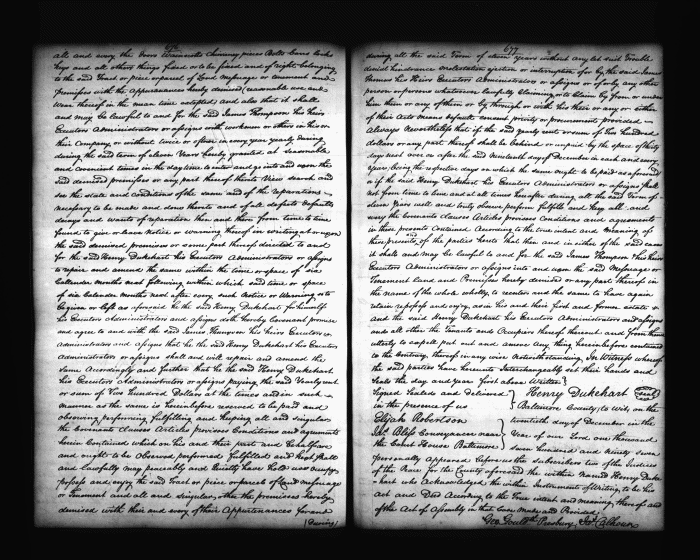 676
all and every the doors Wainscotts Chimney pieces Bolts Barrs Locks
Keys and all others things fixed or to be fixed and of right belonging
to the said Tract or piece or parcel of Land Messuage or tenement and
premises with the Appurtenances hereby demised (reasonable use and
Wear thereof in the mean time excepted) and also that it shall
and may be lawful to and for the said James Thompson his heirs
Executors Administrators or assigns with workmen or others in his or
their Company, or without twice or oftener in every year yearly During
during the said term of eleven Years hereby granted at seasonable
and convenient times in the day time to enter and go into and upon the
said demised premises or any part thereof there to View search and
see the state and Condition of the same and of the reparations
necessary to be made and done thereto and of all default defects
decays and wants of reparation then and there from time to time
found to give or leave Notice or warning thereof in writing at or upon
the said demised premises or some part thereof directed to and
for the said Henry Dukehart his Executors Administrators or assigns
to repair and amend the same within the time or space of six
Calendar months next following within which said time or space
of six Calendar months next after every such Notice or Warning so to
be given or left as aforesaid he the said Henry Dukehart for himself
his Executors Administrators and assigns doth hereby Covenant promise
and agree to and with the said James Thompson his heirs Executors
Administrators and assigns that he the said Henry Dukehart his Executors
Administrators or assigns shall and will repair and amend the
same Accordingly and further that he the said Henry Dukehart
his Executors Administrators or assigns paying the said Yearly rent
or sum of Two Hundred Dollars at the times and in such
manner as the same is hereinbefore reserved to be paid and
observing performing fulfilling and keeping all and singular
the Covenants clauses Articles provisoes Conditions and agreements
herein Contained which on his and their part and behalf are
and ought to be Observed performed fulfilled and kept shall
and lawfully may peaceably and Quietly have hold use occupy
possess and enjoy the said Tract or piece or parcel of Land messuage
or Tenement and all and singular other the premises hereby
demised with their and every of their Appurtenances for and
(During)
677
during all the said Term of eleven years without any let suit Trouble
denial hindrance molestation ejection or interruption of or by the said James
Thomson his Heirs Executors Administrators or assigns or of or by any other
person or persons whatsoever lawfully Claiming or to Claim by from or under
him them or any of them or by through or with his their or any or either
of their Acts means default consent privity or procurement provided
Always Nevertheless that if the said yearly rent or sum of two hundred
dollars or any part thereof shall be behind or unpaid by the space of thirty
days next over or after the said Nineteenth day of December in each and every
Year, being the respective days on which the same ought to be paid as aforesaid
or if the said Henry Dukehart his Executors Administrators or assigns shall
not from time to time and at all times hereafter during all the said Term of
eleven Years well and truly observe perform fulfill and keep all and
every the Covenants Clauses Articles provisoes Conditions and agreements
in these presents Contained According to the true intent and meaning of
these presents and of the parties hereto that then and in either of the said cases
it shall and may be lawful to and for the said James Thompson his Heirs
Executors Administrators or assigns into and upon the said Messuage or
Tenement land and Premises hereby demised or any part thereof in
the name of the whole wholly to reenter and the same to have again
retain repossess and enjoy as in his and their first and former estate
and the said Henry Dukehart his Executors Administrators and assigns
and all other the tenants and Occupiers thereof thereout and from thence
utterly to expell put out and amove any thing herein before contained
to the Contrary thereof in any wise Notwithstanding, In Witness whereof
the said parties have hereunto Interchangeably set their hands and
Seals the day and year first above Written
Signed Sealed and Delivered } Henry Dukehart (Seal)
in the presence of us } Baltimore County, to wit, on the
Elijah Robertson } twentieth day of December in the
Jno. Bliss Conveyancer near } Year of our Lord one thousand
the Court House Baltimore } seven hundred and Ninety seven
personally Appeared before us the subscribers two of the Justices
of the Peace for the County aforesaid the within Named Henry Duke-
-hart who Acknowledged the within Instrument of Writing, to be his
Act and Deed According to the True intent and meaning thereof and
of the Act of Assembly in that Case Made and Provided
Geo. Gouldth. Presbury, Jas. Calhoun